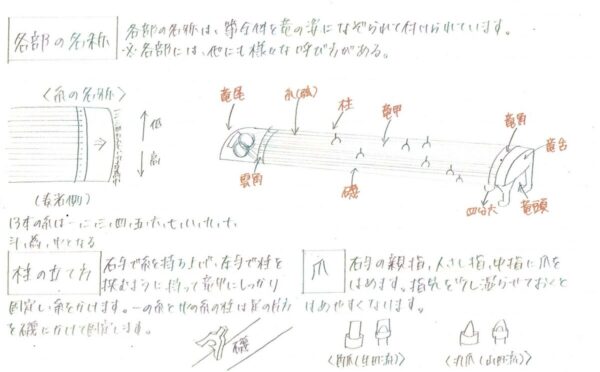 各部の名称
各部の名称は、箏全体を竜の姿になぞられて付けられています。
※各部には、他にも様々な呼び方がある。
〈糸の名称〉
低
高
(奏者側)
13本の糸は一、二、三、四、五、六、七、八、九、十、
斗、為、巾となる
竜尾
糸(絃)
柱
竜甲
竜角
竜舌
雲角
磯
四分六
竜頭
柱の立て方
右手で糸を持ち上げ、左手で柱を
挟むように持って竜甲にしっかり
固定し糸をかけます。一の糸と巾の糸の柱は足の片方
を磯にかけて固定します。
磯
爪
右手の親指、人さし指、中指に爪を
はめます。指先を少し湿らせておくと
はめやすくなります。
〈角爪(生田流)〉
〈丸爪(山田流)〉